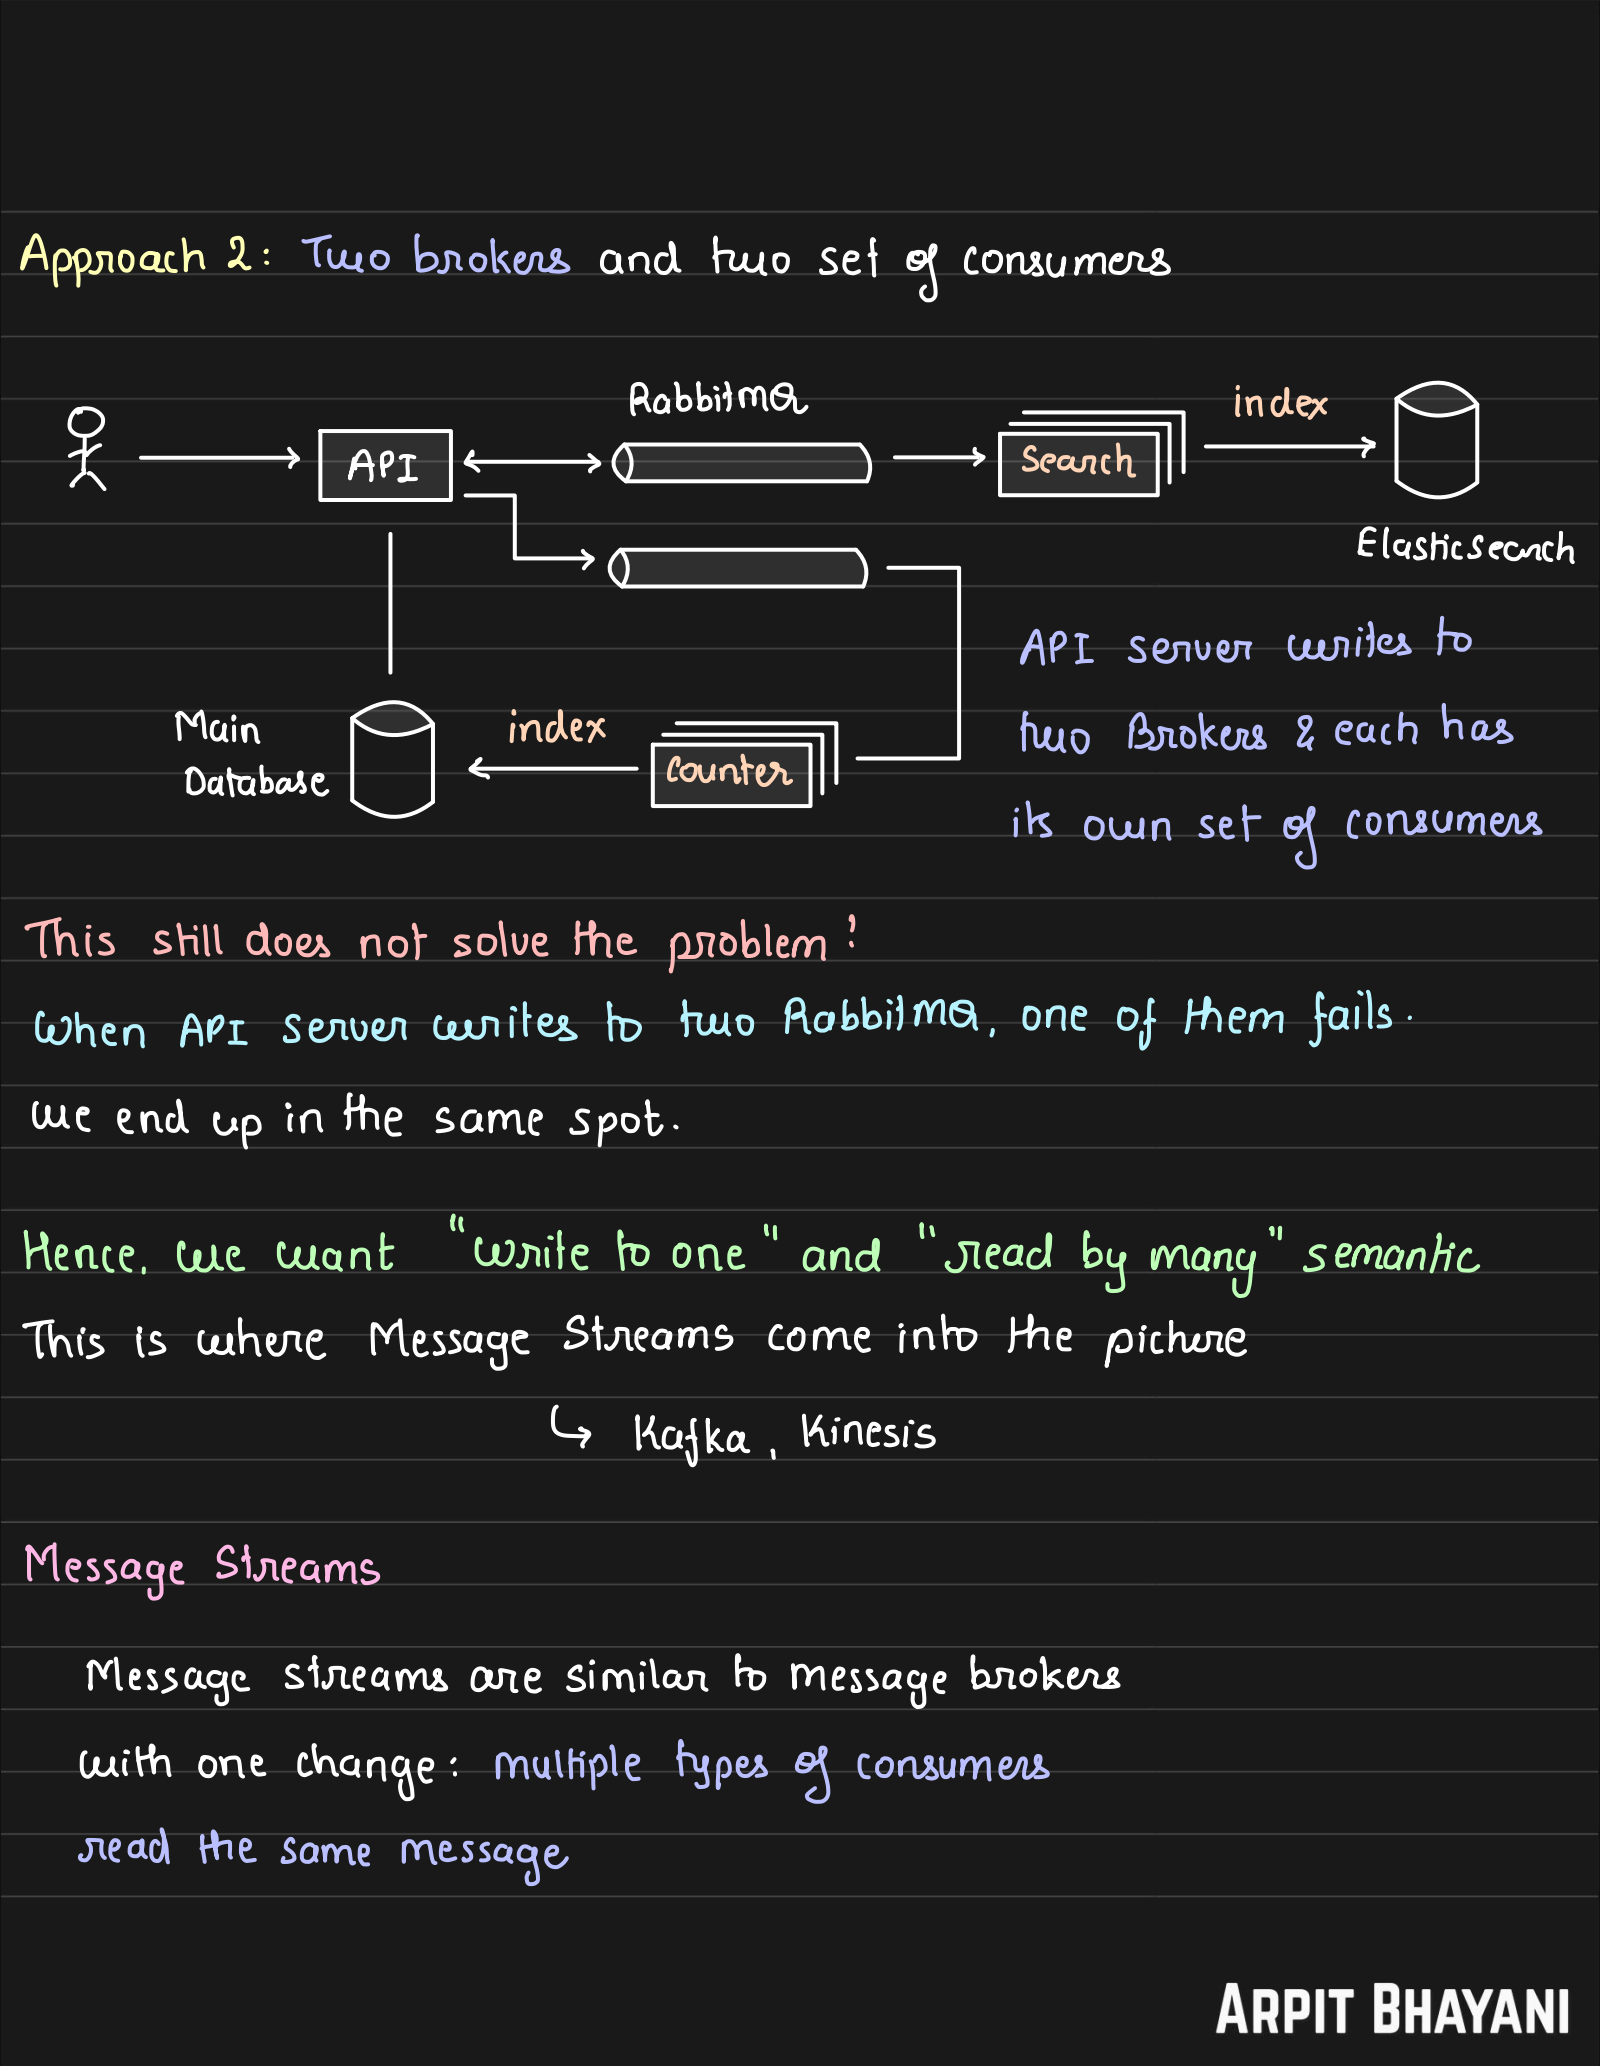 Approach 2: Two brokers and two set of consumers
RabbitMQ
index
API
Search
Elasticsearch
API server writes to
two Brokers & each has
its own set of consumers
Main
Database
index
Counter
This still does not solve the problem!
When API server writes to two RabbitMQ, one of them fails.
we end up in the same spot.
Hence, we want "write to one" and "read by many" semantic
This is where Message Streams come into the picture
↳ Kafka, Kinesis
Message Streams
Message streams are similar to message brokers
with one change: multiple types of consumers
read the same message
ARPIT BHAYANI